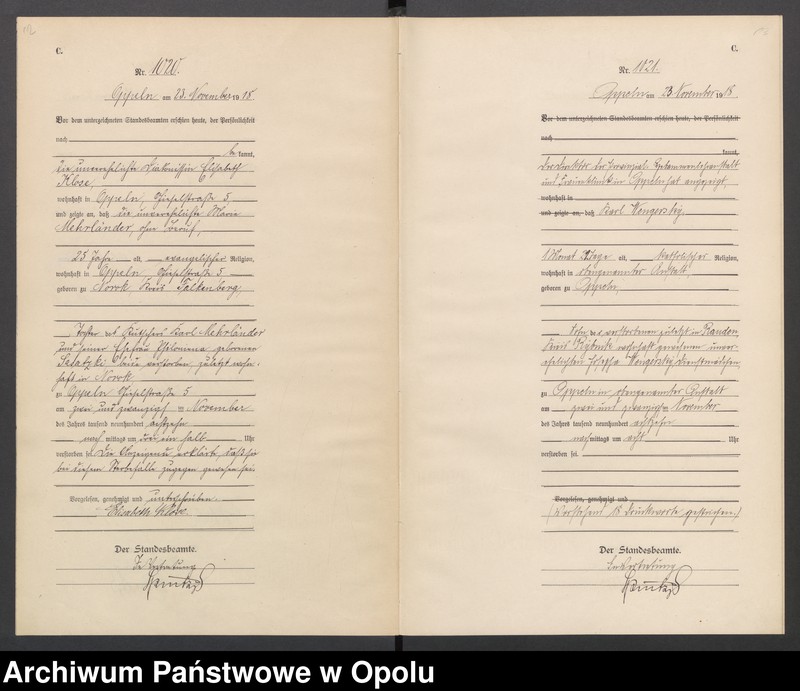 C.
Nr. 1020.
Oppeln am 23. November 1918.
Vor dem unterzeichneten Standesbeamten erschien heute, der Persönlichkeit
nach
be kannt,
die unverehelichte Diakonissin Elisabeth
Klose,
wohnhaft in Oppeln, 5,
und zeigte an, daß die unverehelichte Marie
Mehrländer, ohne Beruf,
25 Jahre alt, evangelischer Religion,
wohnhaft in Oppeln, 5
geboren zu Norok Kreis Falkenberg,
Tochter des Kutschers Karl Mehrländer
und seiner Ehefrau geborenen
beide verstorben, zuletzt wohn-
haft in Norok
zu Oppeln 5
am zwei und zwanzigsten November
des Jahres tausend neunhundert achtzehn
nach mittags um drei ein halb Uhr
verstorben sei. Die Anzeigende erklärte, daß sie
bei diesem Sterbefalle zugegen gewesen sei.
Vorgelesen, genehmigt und unterschrieben.
Elisabeth Klose.
Der Standesbeamte.
In Vertretung
C.
Nr. 1021.
Oppeln am 23 November 1918.
Vor dem unterzeichneten Standesbeamten erschien heute, der Persönlichkeit
nach
kannt,
Der Direktor der Provinzial-Hebammenlehranstalt
und Frauenklinik in Oppeln hat angezeigt,
wohnhaft in
und zeigte an, daß Karl Wengersky,
1 Monat Tage alt, katholischer Religion,
wohnhaft in obengenannter Anstalt,
geboren zu Oppeln,
Sohn der verstorbenen zuletzt in
Kreis Rybnik wohnhaft gewesenen unver-
ehelichten Josepha Wengersky, Dienstmädchen,
zu Oppeln in obengenannter Anstalt
am zwei und zwanzigsten November
des Jahres tausend neunhundert achtzehn
nachmittags um acht Uhr
verstorben sei.
Vorgelesen, genehmigt und
(Vorstehend 18 Druckworte gestrichen.)
Der Standesbeamte.
In Vertretung
Archiwum Państwowe w Opolu